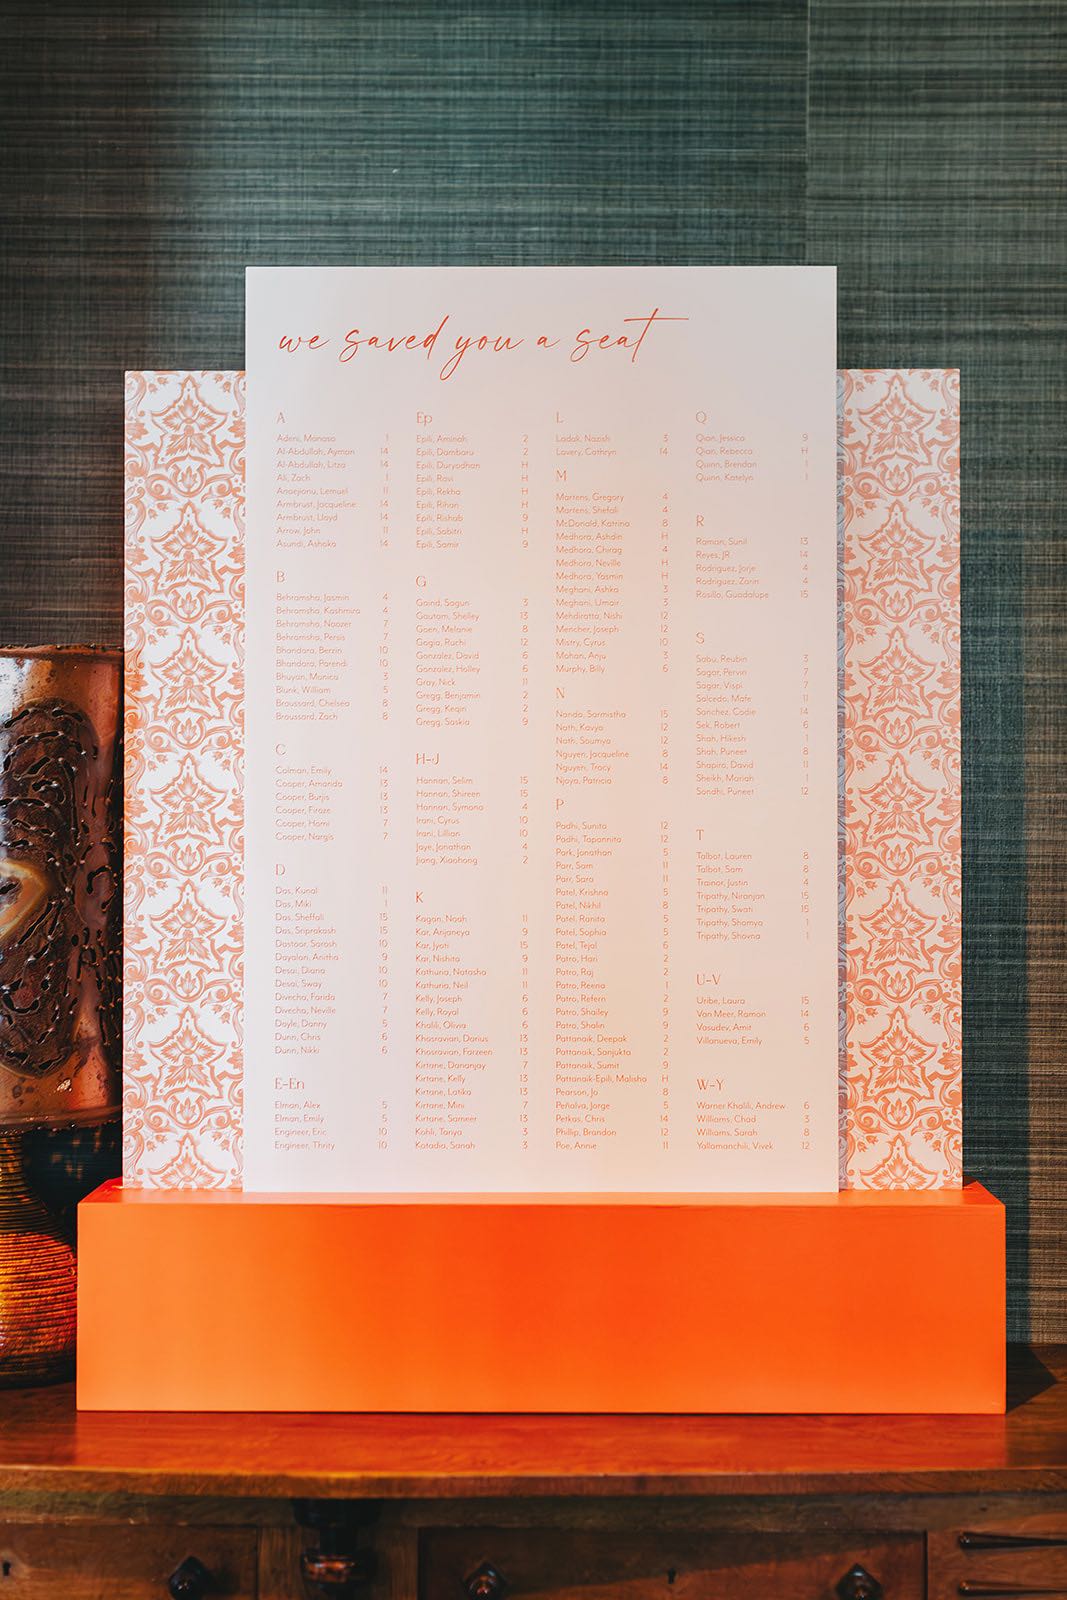 we saved you a seat
A
Adeni, Manasa 1
Al-Abdullah, Ayman 14
Al-Abdullah, Litza 14
Ali, Zach 1
Anaejionu, Lemuel 11
Armbrust, Jacqueline 14
Armbrust, Lloyd 14
Arrow, John 11
Asundi, Ashoka 14
B
Behramsha, Jasmin 4
Behramsha, Kashmira 4
Behramsha, Noozer 7
Behramsha, Persis 7
Bhandara, Berzin 10
Bhandara, Parendi 10
Bhuyan, Monica 3
Blunk, William 5
Broussard, Chelsea 8
Broussard, Zach 8
C
Colman, Emily 14
Cooper, Amanda 13
Cooper, Burjis 13
Cooper, Firoze 13
Cooper, Homi 7
Cooper, Nargis 7
D
Das, Kunal 11
Das, Miki 1
Das, Sheffali 15
Das, Sriprakash 15
Dastoor, Sarosh 10
Dayalan, Anitha 9
Desai, Diana 10
Desai, Sway 10
Divecha, Farida 7
Divecha, Neville 7
Doyle, Danny 5
Dunn, Chris 6
Dunn, Nikki 6
E-En
Elman, Alex 5
Elman, Emily 5
Engineer, Eric 10
Engineer, Thrity 10
Ep
Epili, Aminah 2
Epili, Dambaru 2
Epili, Duryodhan H
Epili, Ravi H
Epili, Rekha H
Epili, Rihan H
Epili, Rishab 9
Epili, Sabitri H
Epili, Samir 9
G
Gaind, Sagun 3
Gautam, Shelley 13
Goen, Melanie 8
Gogia, Rachi 12
Gonzalez, David 6
Gonzalez, Holley 6
Gray, Nick 11
Gregg, Benjamin 2
Gregg, Keqin 2
Gregg, Saskia 9
H-J
Hannan, Selim 15
Hannan, Shireen 15
Hannan, Symona 4
Irani, Cyrus 10
Irani, Lillian 10
Jaye, Jonathan 4
Jiang, Xiaohong 2
K
Kagan, Noah 11
Kar, Anjaneya 9
Kar, Jyoti 15
Kar, Nishita 9
Kathuria, Natasha 11
Kathuria, Neil 11
Kelly, Joseph 6
Kelly, Royal 6
Khalili, Olivia 6
Khosravian, Darius 13
Khosravian, Farzeen 13
Kirtane, Dananjay 7
Kirtane, Kelly 13
Kirtane, Latika 13
Kirtane, Mini 7
Kirtane, Sameer 13
Kohli, Tanya 3
Kotadia, Sanah 3
L
Ladak, Nazish 3
Lavery, Cathryn 14
M
Martens, Gregory 4
Martens, Shefali 4
McDonald, Katrina 8
Medhora, Ashdin H
Medhora, Chirag 4
Medhora, Neville H
Medhora, Yasmin H
Meghani, Ashka 3
Meghani, Umair 3
Mehdiratta, Nishi 12
Mencher, Joseph 12
Mistry, Cyrus 10
Mohan, Anju 3
Murphy, Billy 6
N
Nanda, Sarmistha 15
Nath, Kavya 12
Nath, Soumya 12
Nguyen, Jacqueline 8
Nguyen, Tracy 14
Njoya, Patricia 8
P
Padhi, Sunita 12
Padhi, Tapannita 12
Park, Jonathan 5
Parr, Sam 11
Parr, Sara 11
Patel, Krishna 5
Patel, Nikhil 8
Patel, Ranita 5
Patel, Sophia 5
Patel, Tejal 6
Patro, Hari 2
Patro, Raj 2
Patro, Reena 1
Patro, Refern 2
Patro, Shailey 9
Patro, Shalin 9
Pattanaik, Deepak 2
Pattanaik, Sanjukta 2
Pattanaik, Sumit 9
Pattanaik-Epili, Malisha H
Pearson, Jo 8
Peñalva, Jorge 5
Petkas, Chris 14
Phillip, Brandon 12
Poe, Annie 11
Q
Qian, Jessica 9
Qian, Rebecca H
Quinn, Brendan 1
Quinn, Katelyn 1
R
Raman, Sunil 13
Reyes, JR 14
Rodriguez, Jorje 4
Rodriguez, Zarin 4
Rosillo, Guadalupe 15
S
Sabu, Reubin 3
Sagar, Pervin 7
Sagar, Vispi 7
Salcedo, Mafe 11
Sanchez, Codie 14
Sek, Robert 6
Shah, Hikesh 1
Shah, Puneet 8
Shapiro, David 11
Sheikh, Mariah 1
Sondhi, Puneet 12
T
Talbot, Lauren 8
Talbot, Sam 8
Trainor, Justin 4
Tripathy, Niranjan 15
Tripathy, Swati 15
Tripathy, Shomya 1
Tripathy, Shovna 1
U-V
Uribe, Laura 15
Van Meer, Ramon 14
Vasudev, Amit 6
Villanueva, Emily 5
W-Y
Warner Khalili, Andrew 6
Williams, Chad 3
Williams, Sarah 8
Yallamanchili, Vivek 12